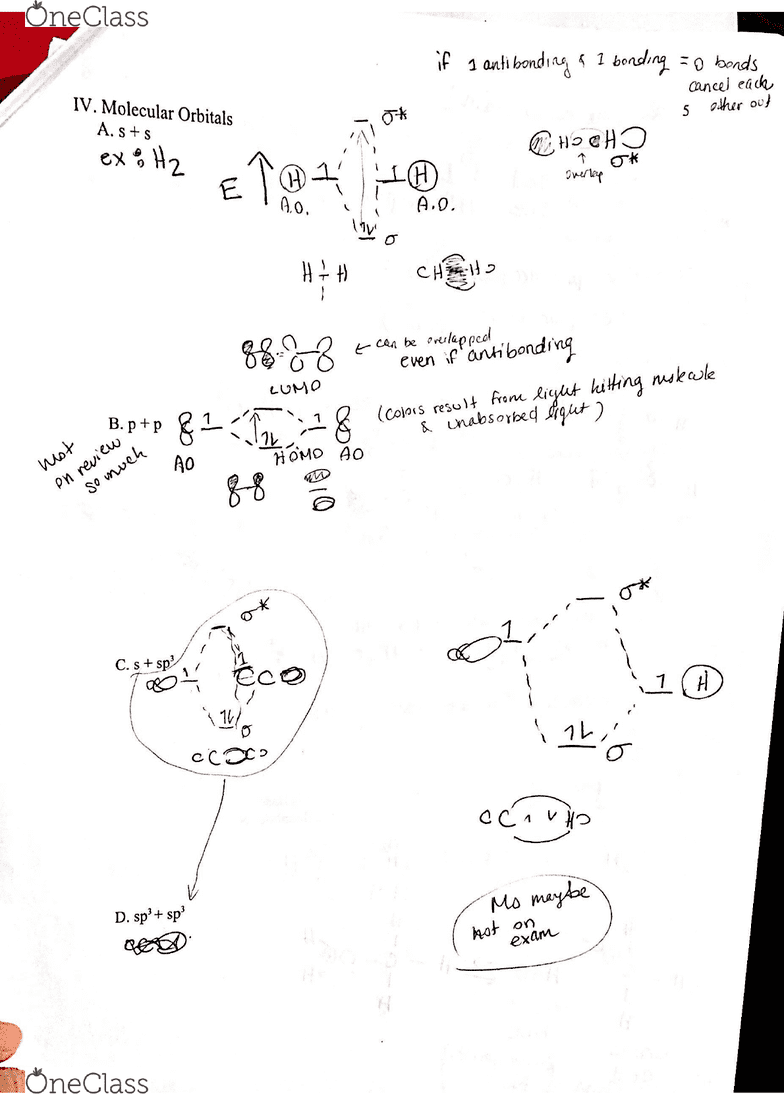 OneClass
if 1 antibonding & 1 bonding = 0 bonds
cancel each
other out
IV. Molecular Orbitals
A. s + s
ex: H2
σ*
E ↑ H 1 1 H
A.O. A.O.
1L σ
H H
H H
H H
↑ σ*
overlap
← can be overlapped
even if antibonding
LUMO
B. p + p 1 1
AO 1L HOMO AO
(colors result from light hitting molecule
& unabsorbed light)
not
on review
so much
σ*
C. s + sp³
1 1
1L σ
σ*
1
1 H
1L σ
H
D. sp³ + sp³
Mo maybe
not on
exam
OneClass